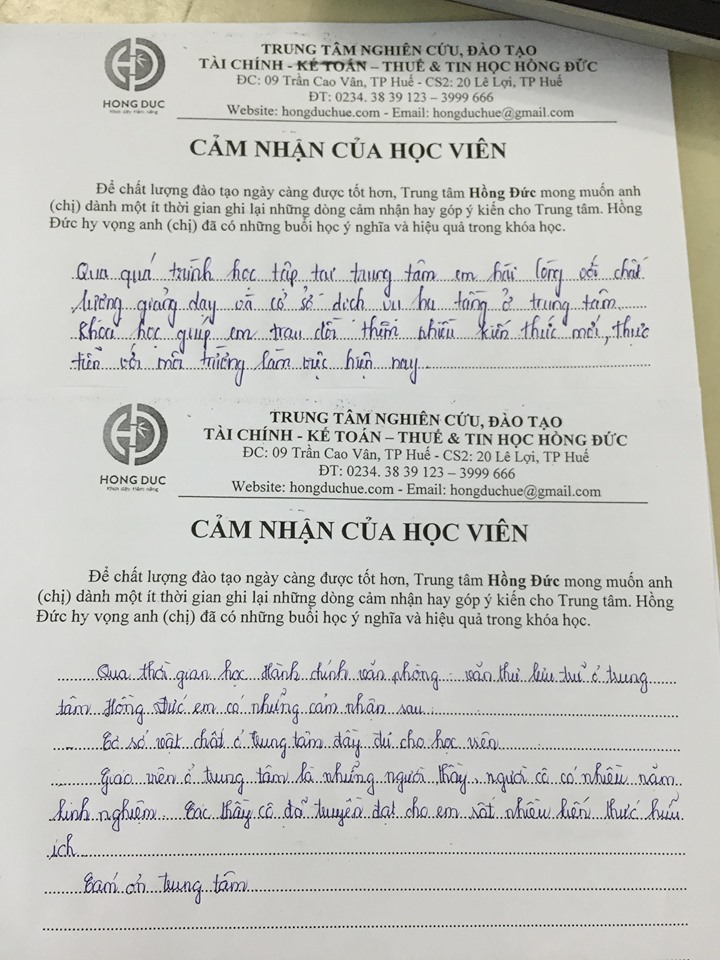 TRUNG TÂM NGHIÊN CỨU, ĐÀO TẠO
TÀI CHÍNH - KẾ TOÁN – THUẾ & TIN HỌC HỒNG ĐỨC
ĐC: 09 Trần Cao Vân, TP Huế - CS2: 20 Lê Lợi, TP Huế
ĐT: 0234. 38 39 123 – 3999 666
Website: hongduchue.com - Email: hongduchue@gmail.com
HONG DUC
Khơi dậy tiềm năng
CẢM NHẬN CỦA HỌC VIÊN
Để chất lượng đào tạo ngày càng được tốt hơn, Trung tâm Hồng Đức mong muốn anh
(chị) dành một ít thời gian ghi lại những dòng cảm nhận hay góp ý kiến cho Trung tâm. Hồng
Đức hy vọng anh (chị) đã có những buổi học ý nghĩa và hiệu quả trong khóa học.
Qua quá trình học tập tại trung tâm em hài lòng với chất
lượng giảng dạy và cơ sở dịch vụ hạ tầng ở trung tâm
Khóa học giúp em trau dồi thêm nhiều kiến thức mới, thực
tiễn với môi trường làm việc hiện nay
TRUNG TÂM NGHIÊN CỨU, ĐÀO TẠO
TÀI CHÍNH - KẾ TOÁN – THUẾ & TIN HỌC HỒNG ĐỨC
ĐC: 09 Trần Cao Vân, TP Huế - CS2: 20 Lê Lợi, TP Huế
ĐT: 0234. 38 39 123 – 3999 666
Website: hongduchue.com - Email: hongduchue@gmail.com
HONG DUC
Khơi dậy tiềm năng
CẢM NHẬN CỦA HỌC VIÊN
Để chất lượng đào tạo ngày càng được tốt hơn, Trung tâm Hồng Đức mong muốn anh
(chị) dành một ít thời gian ghi lại những dòng cảm nhận hay góp ý kiến cho Trung tâm. Hồng
Đức hy vọng anh (chị) đã có những buổi học ý nghĩa và hiệu quả trong khóa học.
Qua thời gian học Hành chính văn phòng - văn thư lưu trữ ở trung
tâm Hồng Đức em có những cảm nhận sau
Cơ sở vật chất ở trung tâm đầy đủ cho học viên
Giáo viên ở trung tâm là những người thầy, người cô có nhiều năm
kinh nghiệm. Các thầy cô đã truyền đạt cho em rất nhiều kiến thức hữu
ích
Cảm ơn trung tâm